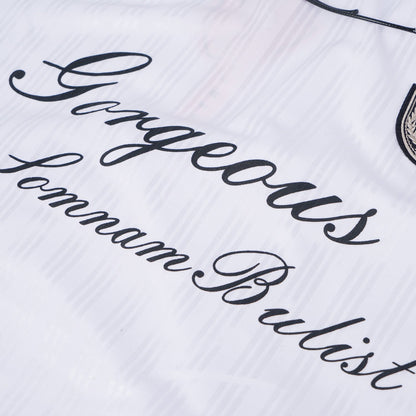 Gorgeous
Somnam Bulist